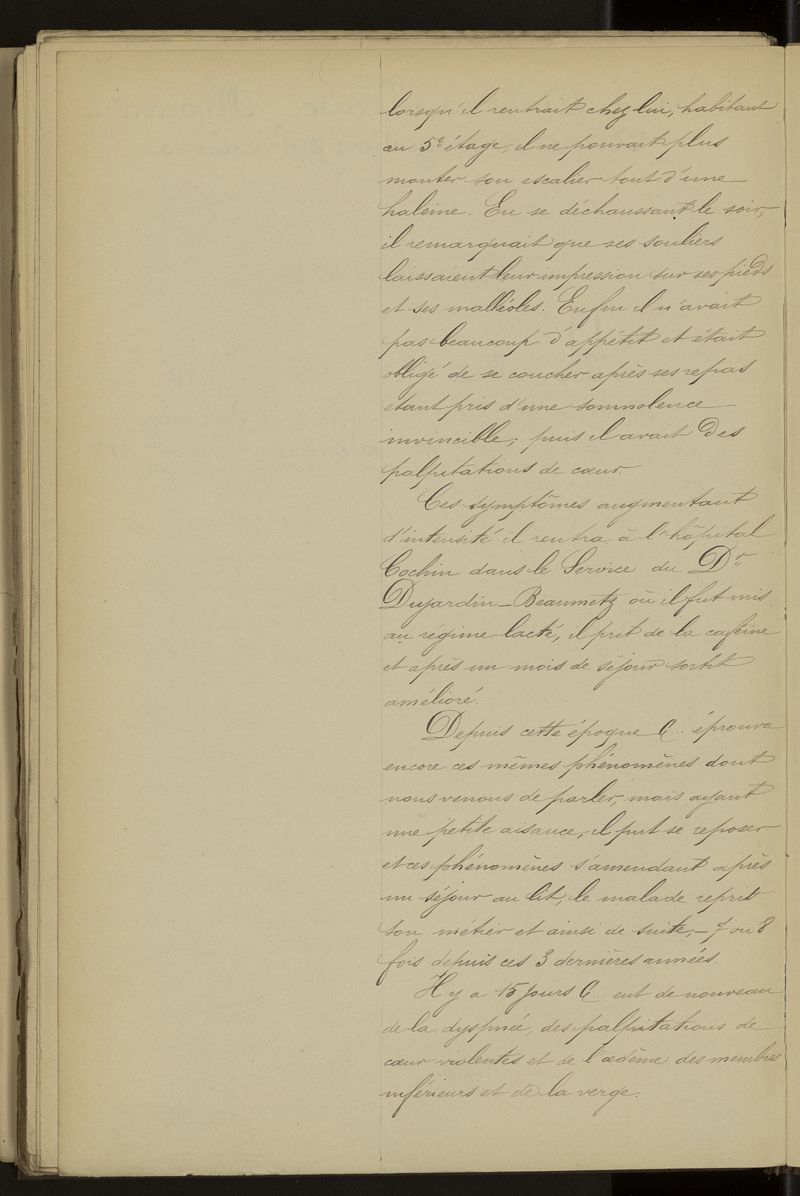 lorsqu'il rentrait chez lui, habitant
au 5e étage, il ne pouvait plus
monter son escalier tout d'une
haleine. En se déchaussant le soir,
il remarquait que ses souliers
laissaient leur impression sur ses pieds
et ses malléoles. Enfin il n'avait
pas beaucoup d'appétit et était
obligé de se coucher après ses repas
étant pris d'une somnolence
invincible; puis il avait des
palpitations de cœur.
Ces symptômes augmentant
d'intensité il rentra à l'hôpital
Cochin dans le Service du Dr
Dujardin-Beaumetz où il fut mis
au régime lacté, il prit de la caféine
et après un mois de séjour sortit
amélioré.
Depuis cette époque C... éprouva
encore ces mêmes phénomènes dont
nous venons de parler, mais ayant
une petite aisance, il put se reposer
et ces phénomènes s'amendant après
un séjour au lit, le malade reprit
son métier et ainsi de suite, - 7 ou 8
fois depuis ces 3 dernières années.
Il y a 15 jours C... eut de nouveau
de la dyspnée, des palpitations de
cœur violentes et de l'œdème des membres
inférieurs et de la verge.